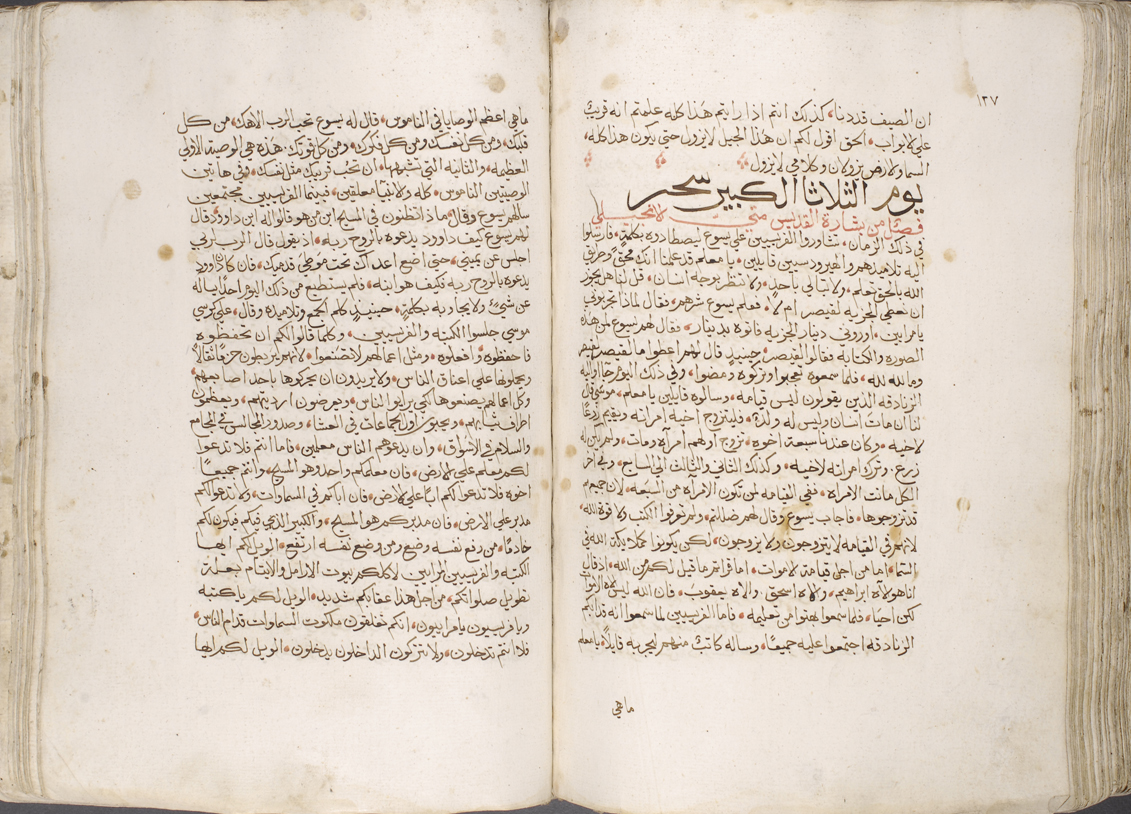 ١٢٧
ان الصيف قد دنا، كذلك انتم اذا رايتم هذا كله علمتم انه قريب
علي الابواب، الحق اقول لكم ان هذا الجيل لا يزول حتي يكون هذا كله،
السما والارض تزولان وكلامي لا يزول
يوم الثلاثا الكبير سحر
فصلا من بشارة القديس متي الانجيلي
في ذلك الزمان، تشاوروا الفريسيين علي يسوع ليصطادوه بكلمة، فارسلوا
اليه تلاميذهم والهيرودسيين قايلين، يا معلم قد علمنا انك محق وطريق
الله بالحق تعلم، ولا تبالي باحد، ولا تنظر بوجه انسان، قل لنا هل يجوز
ان نعطي الجزيه لقيصر ام لا، فعلم يسوع شرهم، فقال لماذا تجربوني
يا مرايين، اوروني دينار الجزيه فاتوه بدينار، فقال لهم يسوع لمن هذه
الصوره والكتابة فقالوا لقيصر، حينيذ قال لهم اعطوا ما لقيصر لقيصر
وما لله لله، فلما سمعوه تعجبوا وتركوه ومضوا، وفي ذلك اليوم جاا اليه
الزنادقه الذين يقولون ليس قيامه، وسالوه قايلين يا معلم، موسي قال
لنا ان مات انسان وليس له ولد، فليتزوج اخيه امراته ويقيم زرعًا
لاخيه، وكان عندنا سبعة اخوه، تزوج اولهم امراه ومات، ولم يكن له
زرع، وترك امراته لاخيه، وكذلك الثاني والثالث الي السابع، وفي اخر
الكل ماتت الامراه، ففي القيامه لمن تكون الامراه من السبعه، لان جميعهم
قد تزوجوها، فاجاب يسوع وقال لهم ضللتم، ولم تعرفوا الكتب ولا قوة الله،
لانهم في القيامه لا يتزوجون ولا يزوجون، لكن يكونوا كملايكة الله في
السما، اما من اجل قيامة الاموات، اما قراتم ما قيل لكم من الله، اذ قال
انا هو الاه ابراهيم، والاه اسحق، والاه يعقوب، فان الله ليس الاه الاموات
لكن احيا، فلما سمعوا بهتوا من تعليمه، فاما الفريسيين لما سمعوا انه قد ابكم
الزنادقه اجتمعوا عليه جميعًا، وساله كاتب منهم ليجربه قايلاً، يا معلم
ما هي
ما هي اعظم الوصايا في الناموس، قال له يسوع تحب الرب الاهك، من كل
قلبك، ومن كل نفسك ومن كل فكرك، ومن كل قوتك، هذه هي الوصية الاولي
العظيمه، والثانيه التي تشبهها، ان تحب قريبك مثل نفسك، وفي هاتين
الوصيتين الناموس، كله والانبيا معلقين، فبينما الفريسيين مجتمعين
سالهم يسوع وقال، ماذا تظنون في المسيح ابن من هو قالوا له ابن داوود، قال
لهم يسوع كيف داوود يدعوه بالروح ربه، اذ يقول قال الرب لربي
اجلس عن يميني، حتي اضع اعداك تحت موطي قدميك، فان كان داوود
يدعوه بالروح ربه فكيف هو ابنه، فلم يستطيع من ذلك اليوم احدًا يساله
عن شيء، ولا يجاوبه بكلمة، حينيذ كلم الجمع وتلاميذه وقال، علي كرسي
موسي جلسوا الكتبه والفريسيين، وكلما قالوا لكم ان تحفظوه
فاحفظوه وافعلوه، ومثل اعمالهم لا تصنعوا، لانهم يربطون حزمًا ثقالاً
ويحملونها علي اعناق الناس، ولا يريدون ان يحركوها باحد اصابعهم،
وكل اعمالهم يصنعوها لكي يرايوا الناس، ويعرضون ارديتهم، ويعظمون
اطراف ثيابهم، ويحبون اول الجماعات في العشا، وصدور المجالس في المجامع
والسلام في الاسواق، وان يدعوهم الناس معلمين، فاما انتم فلا تدعوا
لكم معلم علي الارض، فان معلمكم واحد وهو المسيح، وانتم جميعًا
اخوه فلا تدعوا لكم ابًا علي الارض، فان اباكم في السماوات، ولا تدعوا لكم
مدبر علي الارض، فان مدبركم هو المسيح، والكبير الذي فيكم فيكون لكم
خادمًا، من رفع نفسه وضع ومن وضع نفسه ارتفع، الويل لكم ايها
الكتبه والفريسيين المرايين، لاكلكم بيوت الارامل والايتام بعلة
تطويل صلواتكم، من اجل هذا عقابكم شديد، الويل لكم يا كتبه
ويا فريسيون يا مراييون، انكم تغلقون ملكوت السماوات قدام الناس،
فلا انتم تدخلون، ولا تتركون الداخلون يدخلون، الويل لكم ايها